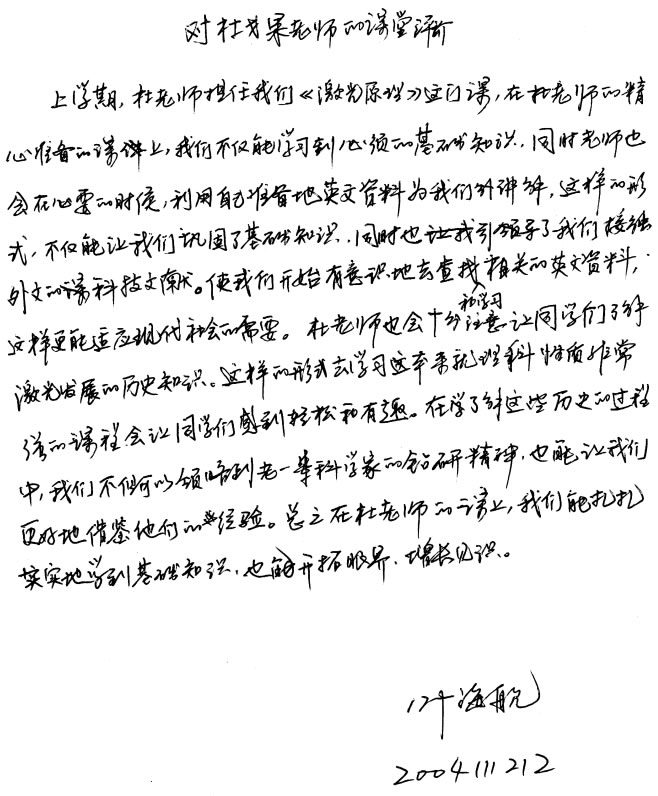 对杜戈果老师的课堂评价
上学期,杜老师担任我们《激光原理》这门课,在杜老师的精
心准备的课件上,我们不仅能学习到必须的基础知识,同时老师也
会在必要的时候,利用自己准备地英文资料为我们作讲解,这样的形
式,不仅能让我们巩固了基础知识,同时也引领导了我们接触
外文的课科技文献。使我们开始有意识地去查找和学习相关的英文资料,
这样更能适应现代社会的需要。杜老师也会十分注意让同学们了解
激光发展的历史知识。这样的形式去学习这本来就理科性质非常
强的课程会让同学们感到轻松和有趣。在学了解这些历史的过程
中,我们不但可以领略到老一辈科学家的钻研精神,也能让我们
更好地借鉴他们的经验。总之在杜老师的课上,我们能扎扎
实实地学到基础知识,也能开拓眼界,增长见识。
叶海航
2004111212